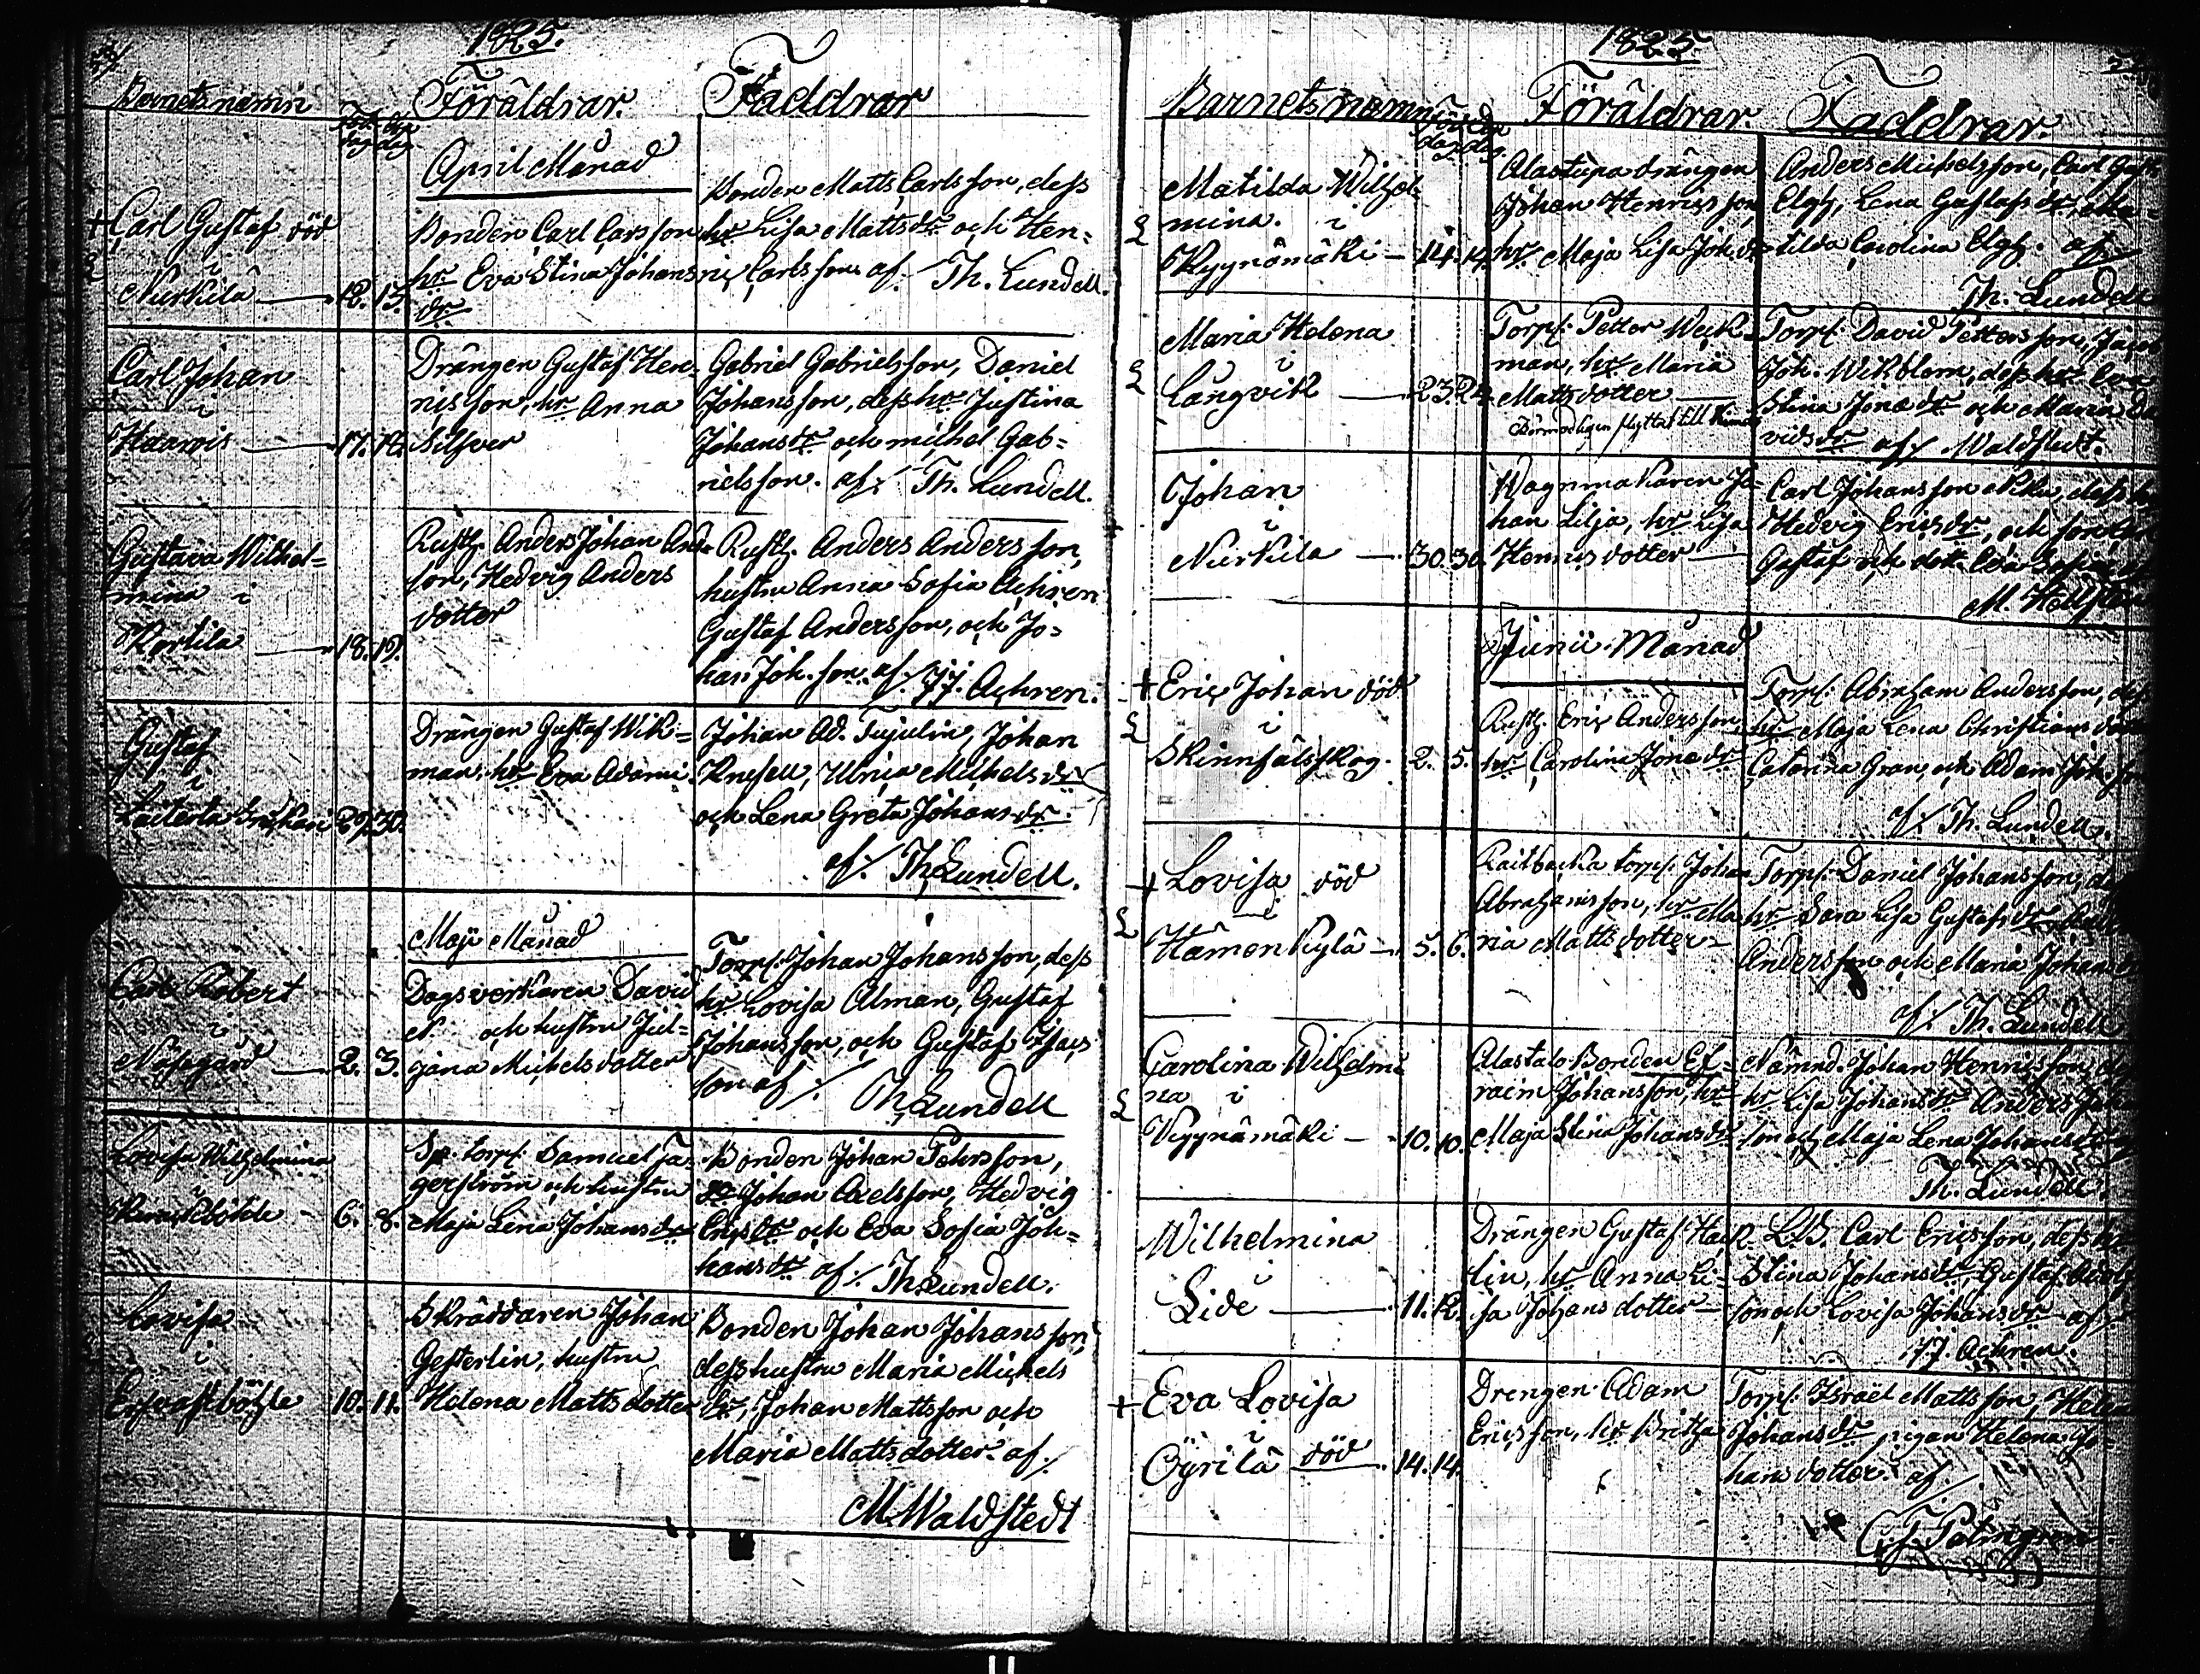 1825.
Barnets namn
Föd. dag
döp dag
Föräldrar.
Faddrar
April Månad
+ Carl Gustaf död
i
Nurkila — 12. 13.
Bonden Carl Carsson
hr Eva Stina Johans
dr
Bonden Matts Carlsson, dess
hr Lisa Mattsdr och Hen=
ric Carlsson. af. Th. Lundell.
Carl Johan
i
Haarvis — 17.
Drängen Gustaf Hen=
ricsson, hr Anna
Silfver
Gabriel Gabrielsson, Daniel
Johansson, dess hr Justina
Johansdr och Michel Gab=
rielsson. af: Th. Lundell.
Gustava Wilhel=
mina i
Kortila — 18. 19.
Rusth. Anders Johan And
son, Hedvig Anders
dotter
Rusth. Anders Andersson,
hustru Anna Sofia Achren
Gustaf Andersson, och Jo=
han Joh.son. af/. JJ. Achren.
Gustaf
i
29. 30.
Drängen Gustaf Wik=
man, hr Eva Adami
Johan Ad. Jujulin, Johan
Knesell, Ulrica Michelsdr
och Lena Greta Johansdr.
af/. Th Lundell.
Maji Månad
Carl Robert
i
Näsegård — 2. 3.
Dagsverkaren David
N. och hustru Jul=
jana Michelsdotter
Torp: Johan Johansson, dess
hr Lovisa Alman, Gustaf
Johansson, och Gustaf Isacs
son af/. Th Lundell
Lovisa Wilhelmina
i
6. 8.
Sp. torp. Samuel Ja=
gerström och hustru
Maja Lena Johansdr
Bonden Johan Petersson,
Johan Axelsson, Hedvig
Ericsdr och Eva Sofia Joh=
hansdr af/. Th Lundell.
Lovisa
i
10. 11.
Skräddaren Johan
Gesterlin, hustru
Helena Mattsdotter
Bonden Johan Johansson,
dess hustru Maria Michels
dr, Johan Mattsson och
Maria Mattsdotter. af/.
M. Waldstedt
1825.
Barnets namn
Föd. dag
Döp. dag.
Föräldrar.
Faddrar.
Matilda Wilhel
mina. i
Kyynämäki — 14. 14.
Alastupa drängen
Johan Henricsson,
hr Maja Lisa Joh.dr
Anders Michelsson, Carl Gust
Elgh, Lena Gustafsdr, Ma=
tilda Carolina Elgh. af/.
Th. Lundell
Maria Helena
i
Långvik — 23. 24.
Torp: Petter Weck=
man, hr Maria
Mattsdotter —
Torp: David Pettersson, Jacob
Joh. Wikblom, dess hr Eva
Stina Jonædr och Maria Da
vidsdr af/. Waldstedt.
Johan
i
Nurkila — 30. 30.
Wagnmakaren Jo=
han Lilja, hr Lisa
Henricsdotter —
Carl Johansson Niku, dess
Hedvig Ericsdr, och
Gustaf och dott. Eva Sofia
M.
Junii Månad
+ Eric Johan död
i
Skinnfälsskog. 2. 5.
Rusth. Eric Andersson,
hr Carolina Jonædr
Torp: Abraham Andersson, dess
hr Maja Lena Christians
Catarina Gran, och Adam
af/. Th. Lundell.
+ Lovisa död
i
Hämenkylä — 5. 6.
Kaitbacka torp: Johan
Abrahamsson, hr Ma
ria Mattsdotter
Torp: Daniel Johansson,
hr Sara Lisa Gustafsdr,
Andersson och Maria Johan
af/. Th. Lundell
Carolina Wilhelmi
na i
Vyynämäki — 10. 10.
Alastalo Bonden Ef=
raim Johansson, hr
Maja Stina Johansdr
Nämnd. Johan Henricsson,
hr Lisa Johansdr Anders Joh
son och Maja Lena Johansdr
Th. Lundell.
Wilhelmina
i
Lide — 11. 12.
Drängen Gustaf Hack
lin, hr Anna Li=
sa Johansdotter —
L.B. Carl Ericsson, dess hr
Stina Johansdr, Gustaf Adolf
son och Lovisa Johansdr af/.
JJ. Achren.
+ Eva Lovisa
i
Öyrilä död. 14. 14.
Drengen Adam
Ericsson, hr Britha
Torp: Israël Mattsson, Helena
Johansdr pigan Helena Jo=
hansdotter. af/.